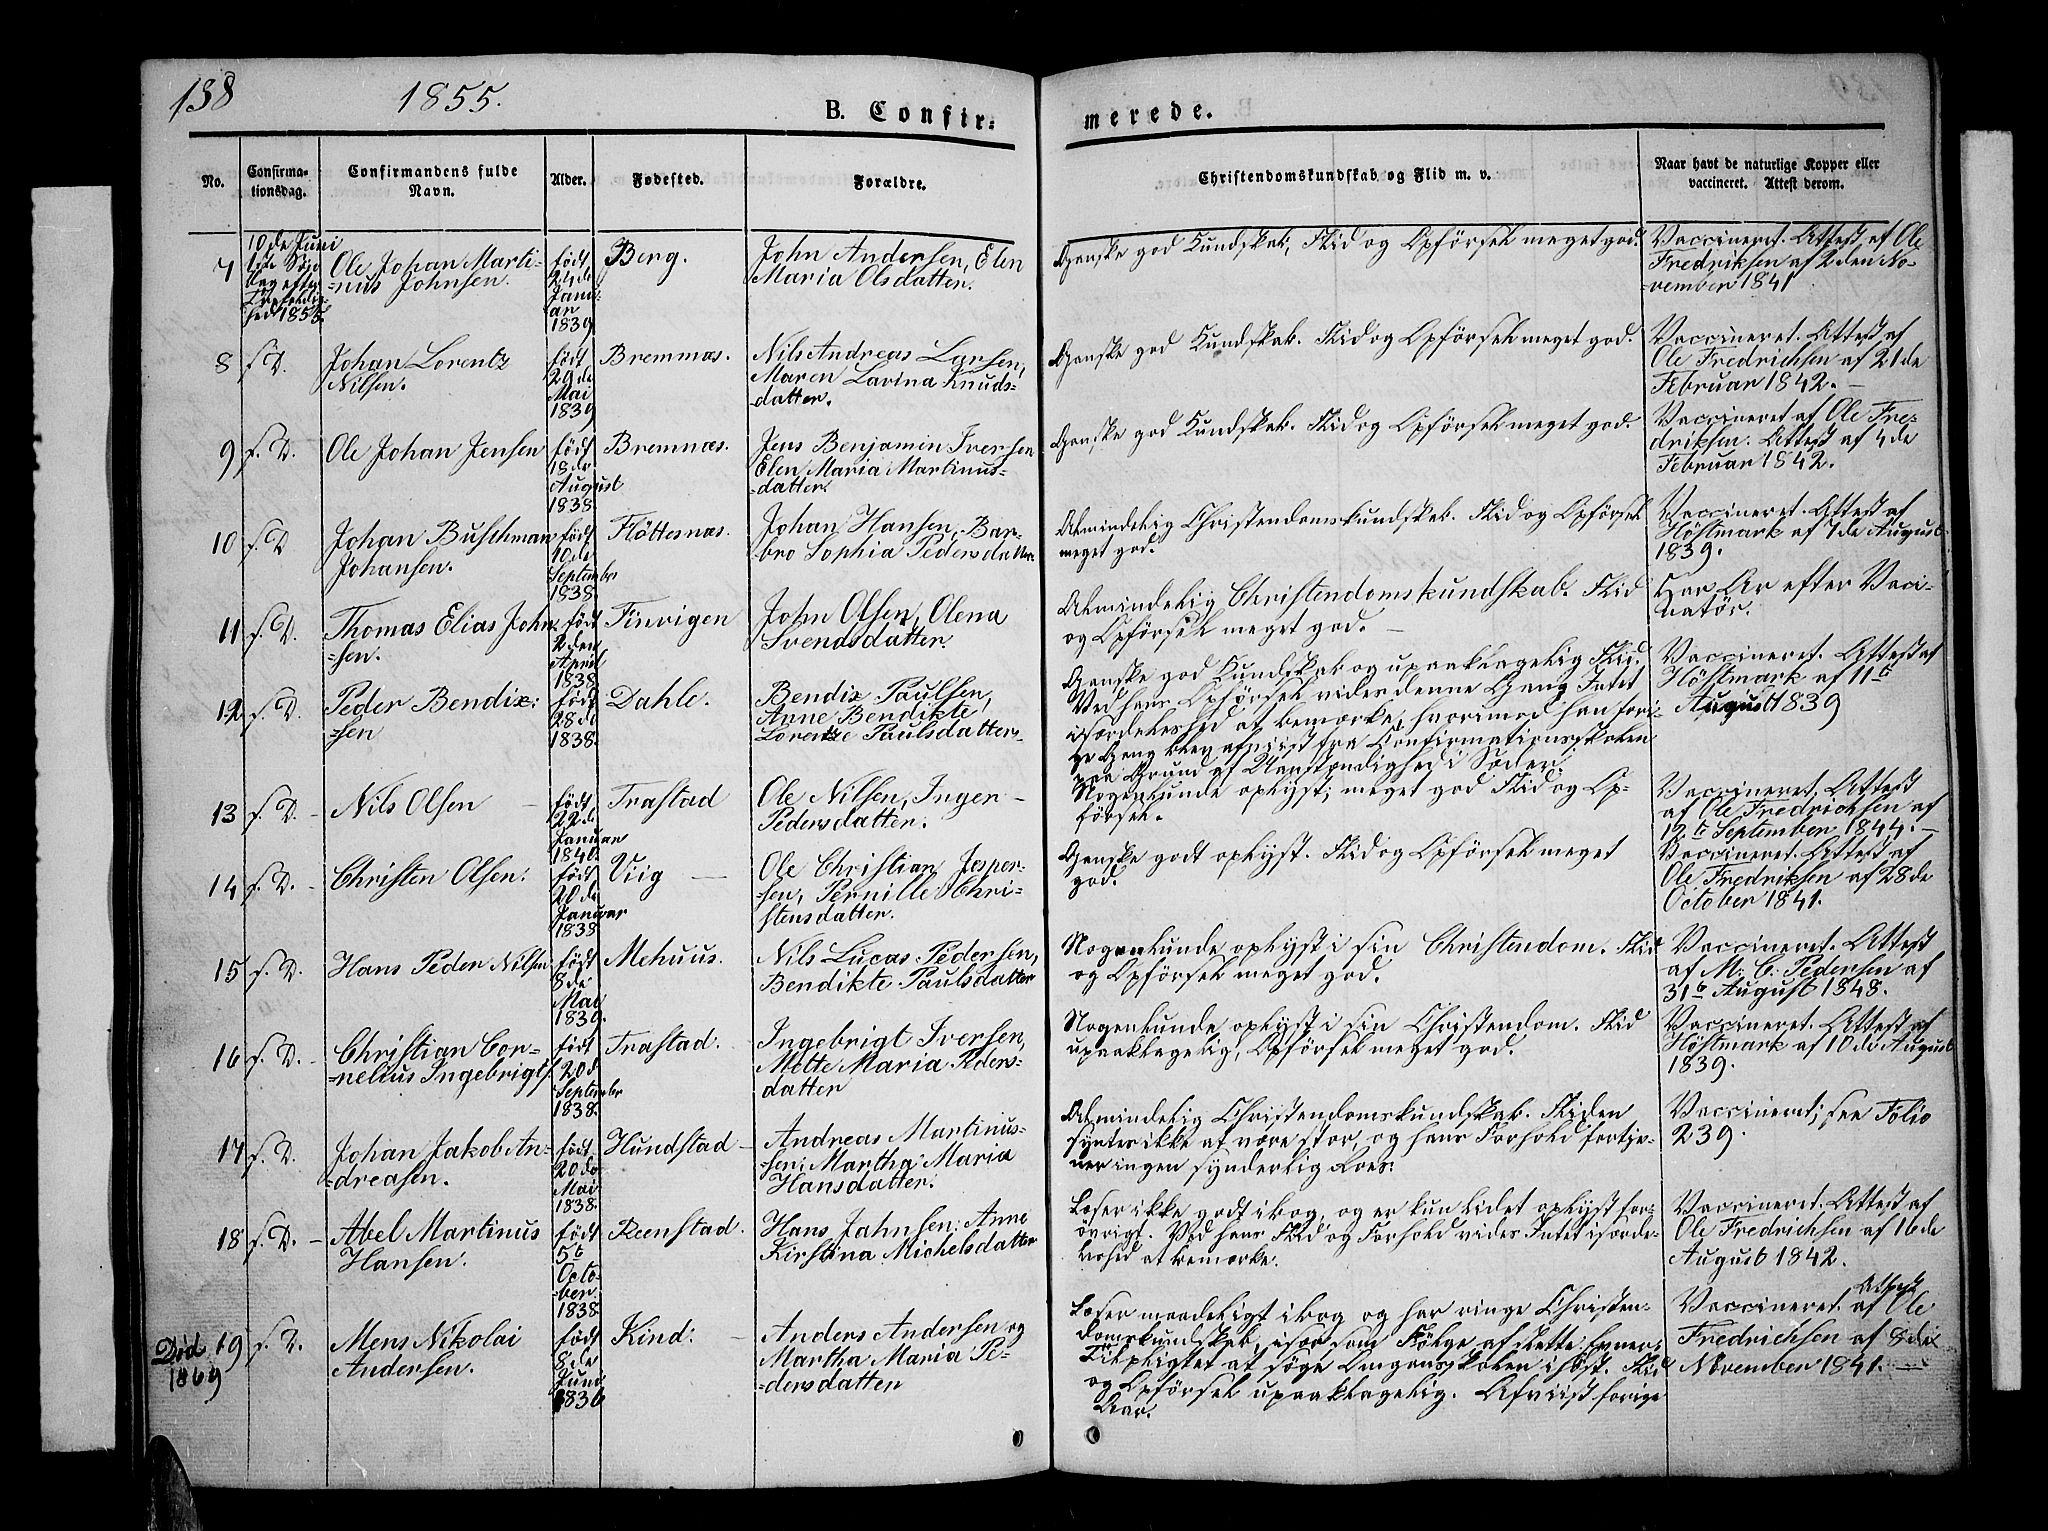 138
1855.
B. Confir-
merede.
No.
Confirma-
tionsdag.
Confirmandens fulde
Navn.
Alder.
Fødested.
Forældre.
Christendomskundskab og Flid m. v.
Naar havt de naturlige Kopper eller
vaccineret. Attest derom.
7
10de Juni
1ste Søn-
dag efter
Trefoldig-
hed 1855.
Ole Johan Marti-
=nus Johnsen.
født
24de
Janu-
ar
1839
Berg.
John Andersen, Elen
Maria Olsdatter.
Ganske god Kundskab, Flid og Opførsel meget god.
Vaccineret. Attest af Ole
Fredriksen af 2den No-
=vember 1841
8
f. D.
Johan Lorentz
Nilsen.
født
29de
Mai
1839
Bremnæs.
Nils Andreas Larsen,
Maren Lavina Knuds-
=datter.
Ganske god Kundskab. Flid og Opførsel meget god.
Vaccineret. Attest af
Ole Fredrichsen af 21de
Februar 1842. —
9
f. D.
Ole Johan Jensen
født
18de
August
1838.
Bremnæs.
Jens Benjamin Iversen
Elen Maria Martinus-
=datter.
Ganske god Kundskab. Flid og Opførsel meget god.
Vaccineret af Ole Fre-
driksen. Attest af 4de
Februar 1842.
10
f. D
Johan Buschman
Johansen.
født
10de
September
1838.
Fløttenæs.
Johan Hansen, Bar-
bro Sophia Pedersdatter
Almindelig Christendomskundskab. Flid og Opførsel
meget god.
Vaccineret. Attest af
Høstmark af 7de August
1839.
11
f. D.
Thomas Elias John-
=sen.
født
2den
April
1838.
Finvigen
John Olsen, Olena
Svendsdatter.
Almindelig Christendomskundskab. Flid
og Opførsel meget god. —
Har Ar efter Vacci-
natør.
12
f. D.
Peder Bendix-
=sen
født
28de
1838.
Dahle.
Bendix Paulsen,
Anne Bendikte
Lorentze Paulsdatter.
Ganske god Kundskab og upaaklagelig Flid.
Ved hans Opførsel vides denne Gang Intet
isærdeleshed at bemærke, hvorimod han fori-
ge Gang blev afviist fra Confirmationsskolen
paa Grund af Uanstændighed i Sæder.
Vaccineret. Attest af
Høstmark af 11te
August 1839
13
f. D. -
Nils Olsen —
født
22de
Januar
1840.
Trastad
Ole Nilsen, Inger
Pedersdatter.
Nogenlunde oplyst; meget god Flid og Op-
førsel.
Vaccineret. Attest
af Ole Fredrichsen af
12te September 1844. —
14
f. D. -
Christen Olsen.
født
20de
Januar
1838
Viig —
Ole Christian Jesper-
=sen, Pernille Chri-
stensdatter.
Ganske godt oplyst. Flid og Opførsel meget
god.
Vaccineret. Attest af
Ole Fredriksen af 28de
October 1841.
15
f. D.
Hans Peder Nilsen
født
8de
Mai
1839.
Mehuus.
Nils Lucas Pedersen,
Bendikte Paulsdatter
Nogenlunde oplyst i sin Christendom. Flid
og Opførsel meget god.
Vaccineret. Attest
af M. C. Pedersen af
31te August 1848.
16
f. D. -
Christian Cor-
=nelius Ingebrigts.
født
20de
September
1838.
Trastad.
Ingebrigt Iversen,
Mette Maria Peders-
datter
Nogenlunde oplyst i sin Christendom. Flid
upaaklagelig, Opførsel meget god.
Vaccineret. Attest af
Høstmark af 10de August
1839.
17
f. D.
Johan Jakob An-
=dreasen.
født
20de
Mai
1838.
Hundstad —
Andreas Martinus-
sen, Martha Maria
Hansdatter.
Almindelig Christendomskundskab. Fliden
syntes ikke at være stor, og hans Forhold fortje-
ner ingen synderlig Roes.
Vaccineret; see Folio
239.
18
f. D. -
Abel Martinus
Hansen.
født
5te
Octo-
=ber
1838
Reenstad.
Hans Jahnsen, Anne
Kirstina Michelsdatter
Læser ikke godt i bog, og er kun lidet oplyst for-
øvrigt. Ved hans Flid og Forhold vides Intet isærde-
leshed at bemærke.
Vaccineret. Attest af
Ole Fredrichsen af 16de
August 1842.
Død
1869
19
f. D.
Mens Nikolai
Andersen.
født
8de
Juni
1836
Kind. —
Anders Andersen og
Martha Maria Pe-
=dersdatter
Læser maadeligt i bog og har ringe Christen-
domskundskab, især som Følge af slette Evner.
Tilpligtet at søge Omgangsskolen i Høst. Flid
og Opførsel upaaklagelig. Afviist forrige
Aar.
Vaccineret. Attest af Ole
Fredrichsen af 8de
November 1841. —